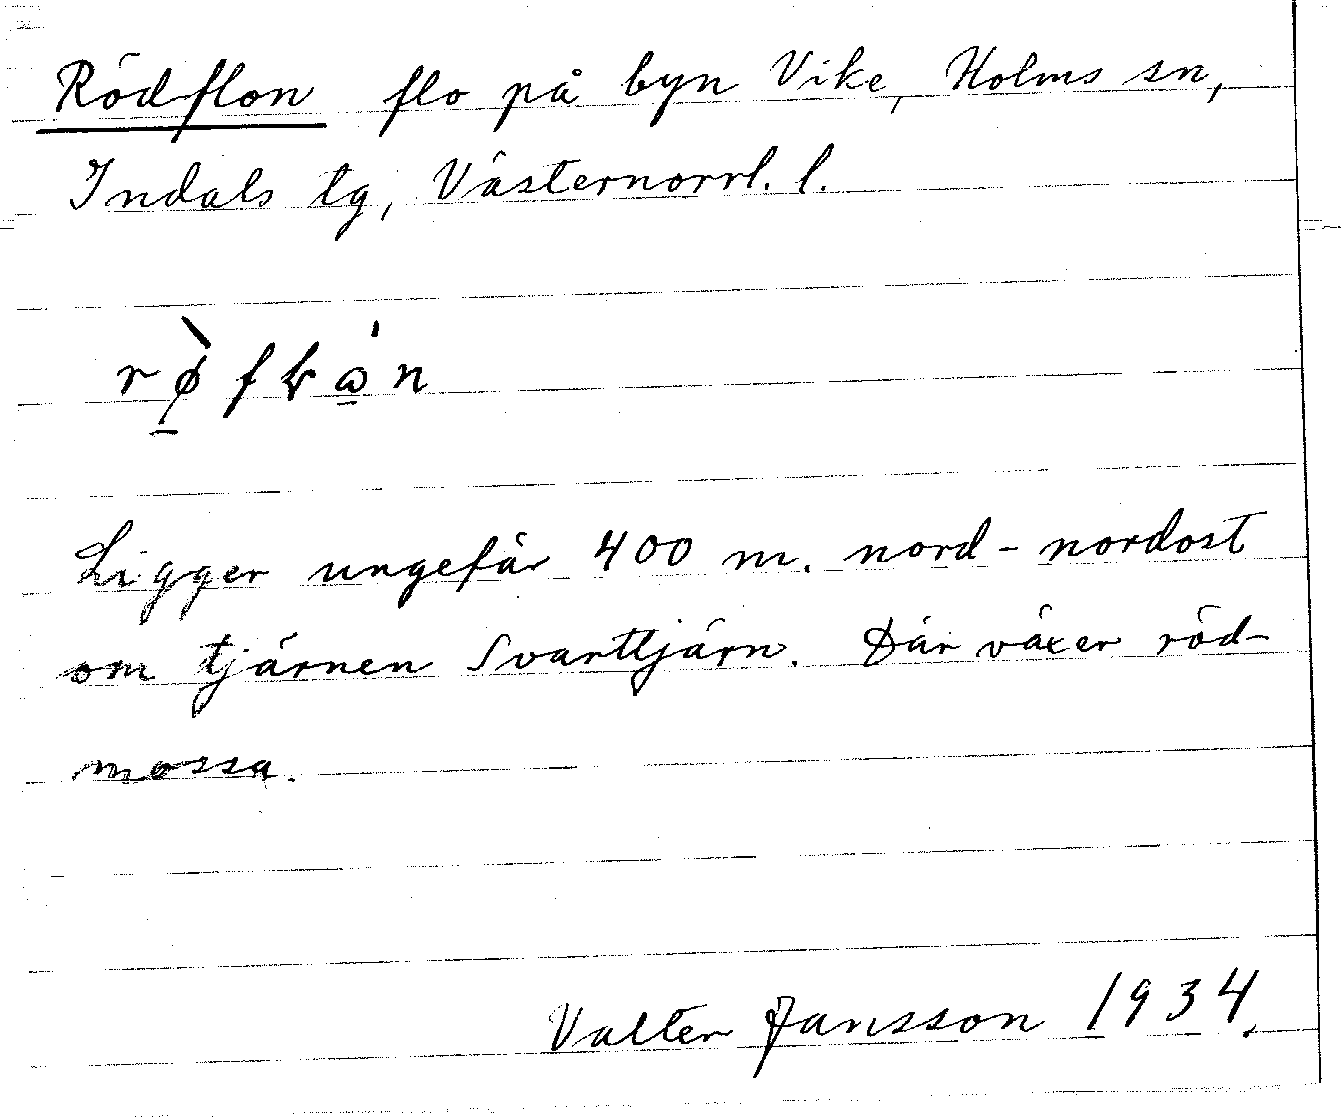 Rödflon flo på byn Vike, Holms sn,
Indals tg, Västernorrl. l.
Ligger ungefär 400 m. nord-nordost
om tjärnen Svarttjärn. Där växer röd-
mossa.
Valter Jansson 1934.